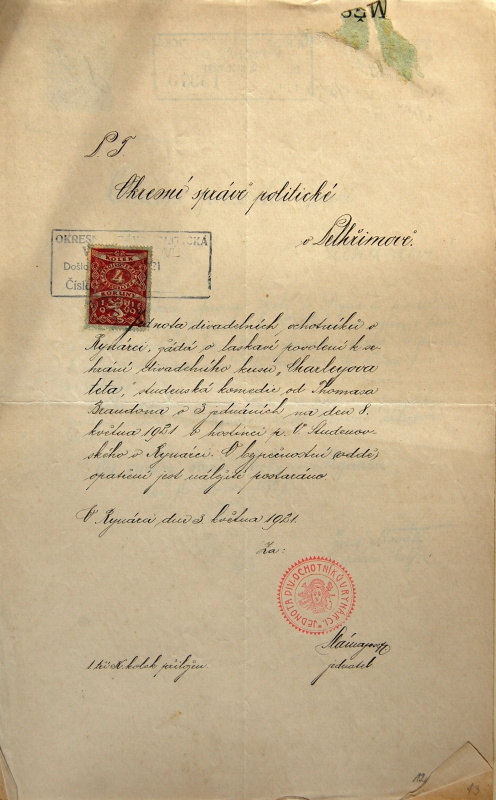 P. T.
Okresní správě politické
v Pelhřimově.
OKRESNÍ SPRÁVA POLITICKÁ
Došlo
21
Číslo
KOLEK
4
KORUNY
Jednota divadelních ochotníků v
Rynárci, žádá o laskavé povolení k se-
hrání divadelního kusu, „Charleyova
teta," studenská komedie od Thomasa
Brandona o 3 jednáních na den 8.
května 1921 v hostinci p. V. Studenov-
ského v Rynárci. O bezpečnostní
opatření jest náležitě postaráno.
V Rynárci dne 3. května 1921.
Za:
JEDNOTA DIV. OCHOTNÍKŮ V RYNÁRCI.
jednatel
1 kolek přiložen.
13